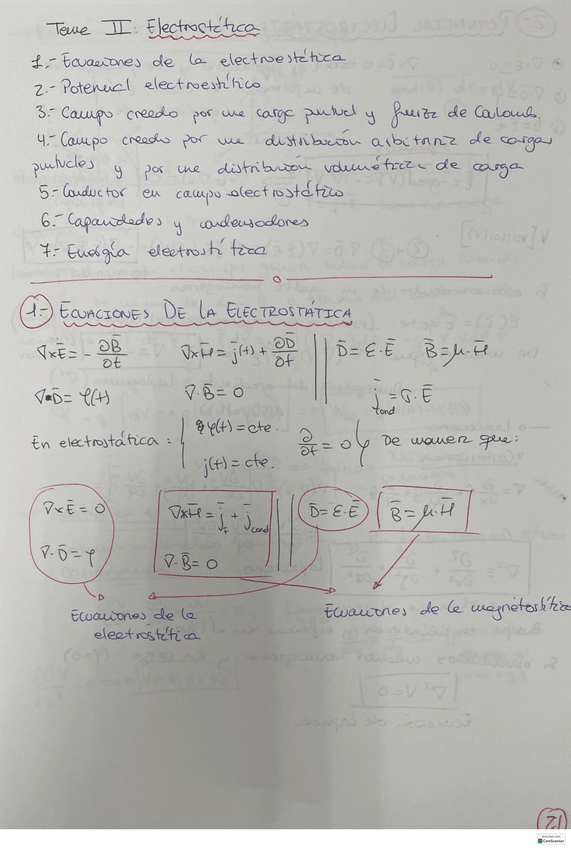 Tema II: Electrostática
1.- Ecuaciones de la electroestática
2.- Potencial electroestático
3.- Campo creado por una carga puntual y fuerza de Coulomb.
4.- Campo creado por una distribución arbitraria de cargas
puntuales y por una distribución volumétrica de carga
5.- Conductor en campo electrostático
6.- Capacidades y condensadores
7.- Energía electrostática
1.- ECUACIONES DE LA ELECTROSTÁTICA
∇×E̅ = - ∂B̅/∂t ∇×H̅ = j̅(t) + ∂D̅/∂t || D̅ = ε·E̅ B̅ = μ·H̅
∇·D̅ = φ(t) ∇·B̅ = 0 || j̅cond = σ·E̅
En electrostática: { φ(t) = cte. j(t) = cte. ∂/∂t = 0 } De manera que:
∇×E̅ = 0 ∇×H̅ = j̅F + j̅cond || D̅ = ε·E̅ B̅ = μ·H̅
∇·D̅ = φ ∇·B̅ = 0
Ecuaciones de la electrostática
Ecuaciones de la magnetostática
21
CamScanner